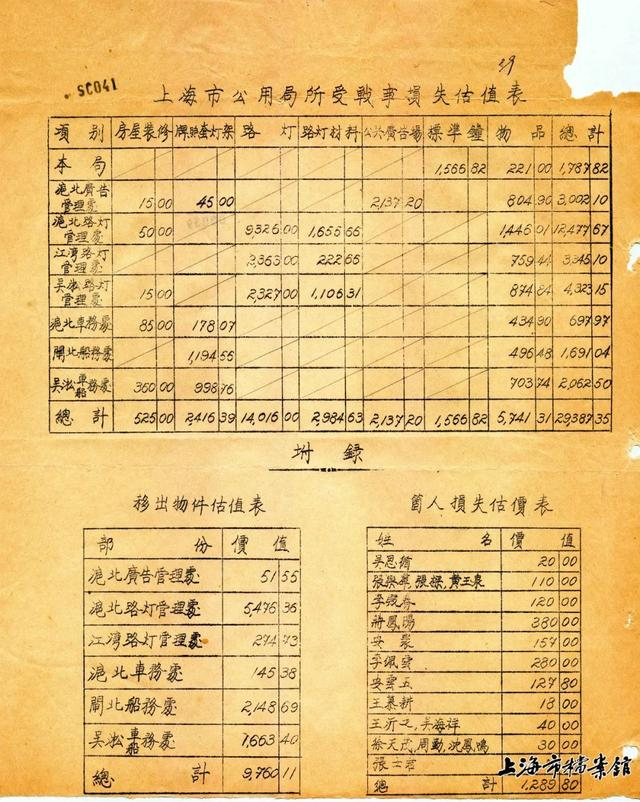 39
SC041
上海市公用局所受戰事損失估值表
項別 房屋裝修 牌照壹灯架 路灯 路灯材料 公共廣告場 標準鐘 物品 總計
本局 1,566 82 221 00 1,787 82
滬北廣告管理處 15 00 45 00 2,137 20 804 90 3,002 10
滬北路灯管理處 50 00 9326 00 1,655 66 1446 01 12,477 67
江灣路灯管理處 2,363 00 222 66 759 44 3,345 10
吳淞路灯管理處 15 00 2,327 00 1,106 31 874 84 4,323 15
滬北車務處 85 00 178 07 434 90 697 97
閘北船務處 1,194 56 496 48 1,691 04
吳淞車船務處 360 00 998 76 703 74 2,062 50
總計 525 00 2416 39 14,016 00 2,984 63 2,137 20 1,566 82 5,741 31 29,387 35
附錄
移出物件估值表
部份 價值
滬北廣告管理處 51 55
滬北路灯管理處 5,476 36
江灣路灯管理處 274 73
滬北車務處 145 38
閘北船務處 2,148 69
吳淞車船務處 1,663 40
總計 9,760 11
箇人損失估價表
姓名 價值
吳恩 20 00
張 張 黃玉 110 00
李 春 120 00
蔣鳳鳴 380 00
安 157 00
李珮雲 280 00
安雲五 127 80
王慕耕 18 00
王沂之, 吳海祥 40 00
徐天茂, 周勤, 沈鳳鳴 30 00
張士君
總計 1,289 80
上海市檔案館